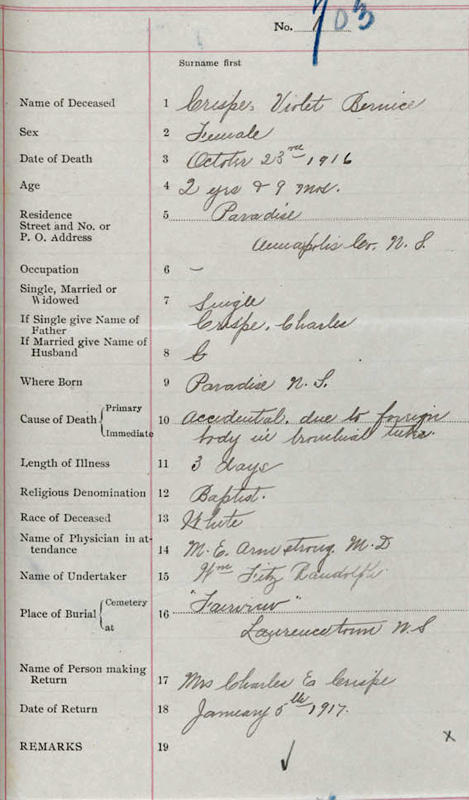 No. 703
Surname first
Name of Deceased 1 Crispe, Violet Bernice
Sex 2 Female
Date of Death 3 October 23rd 1916
Age 4 2 yrs & 9 mos.
Residence
Street and No. or 5 Paradise
P. O. Address
Annapolis Co. N. S.
Occupation 6 –
Single, Married or
Widowed 7 Single
If Single give Name of
Father Crispe, Charles
If Married give Name of
Husband 8
Where Born 9 Paradise N. S.
Cause of Death { Primary
Immediate 10 accidental, due to foreign
body in bronchial tube.
Length of Illness 11 3 days
Religious Denomination 12 Baptist.
Race of Deceased 13 White
Name of Physician in at-
tendance 14 M. E. Armstrong M. D
Name of Undertaker 15 Wm Fitz Randolph
Place of Burial { Cemetery
at 16 "Fairview"
Laurencetown N S
Name of Person making
Return 17 Mrs Charles E Crispe
Date of Return 18 January 5th 1917.
REMARKS 19
x